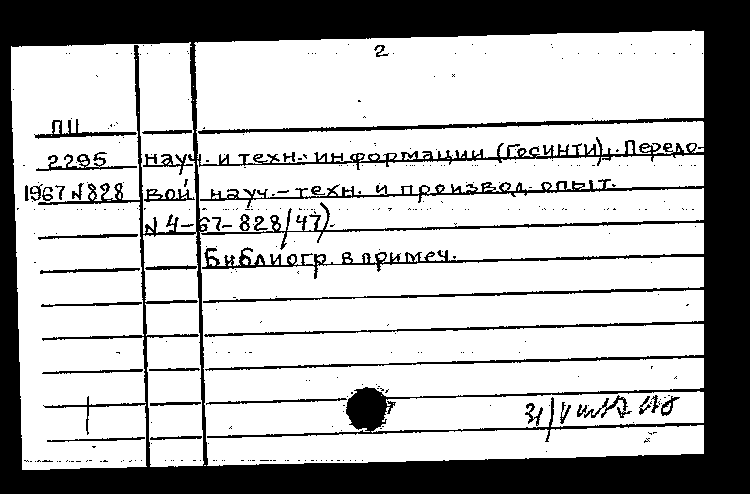 2
ПII
2295 науч. и техн. информации (Госинти). Передо-
1967 N 828 вой науч.-техн. и производ. опыт.
N 4-67-828/47).
Библиогр. в примеч.
31/V